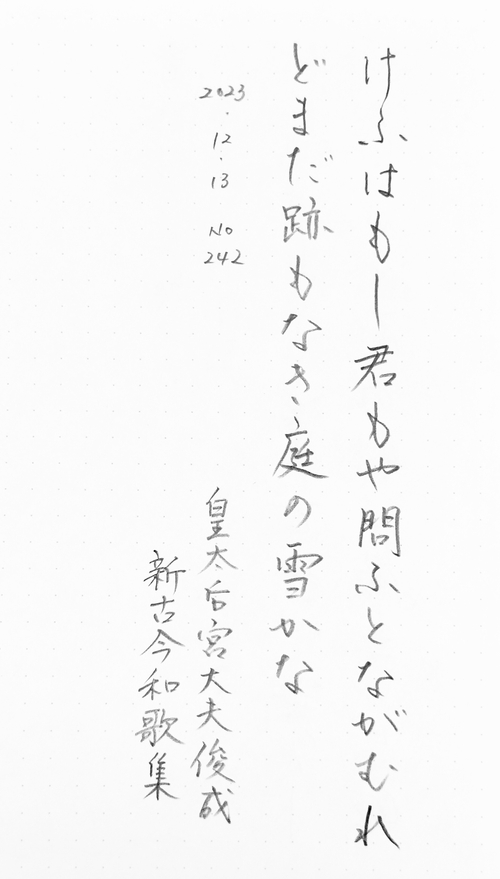 けふはもし君もや問ふとながむれ
どまだ跡もなき庭の雪かな
2023・12・13 No 242
皇太后宮大夫俊成
新古今和歌集